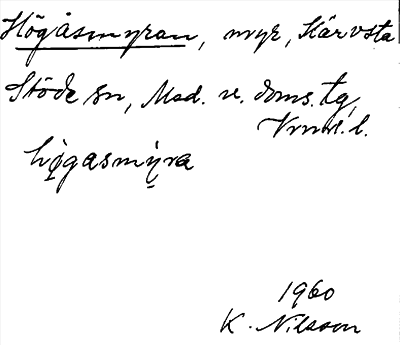 Högåsmyran, myr, Kärvsta
Stöde sn, Med. v. doms. tg,
Vrml. l.
hø̣gasmy̬ra
1960
K. Nilsson